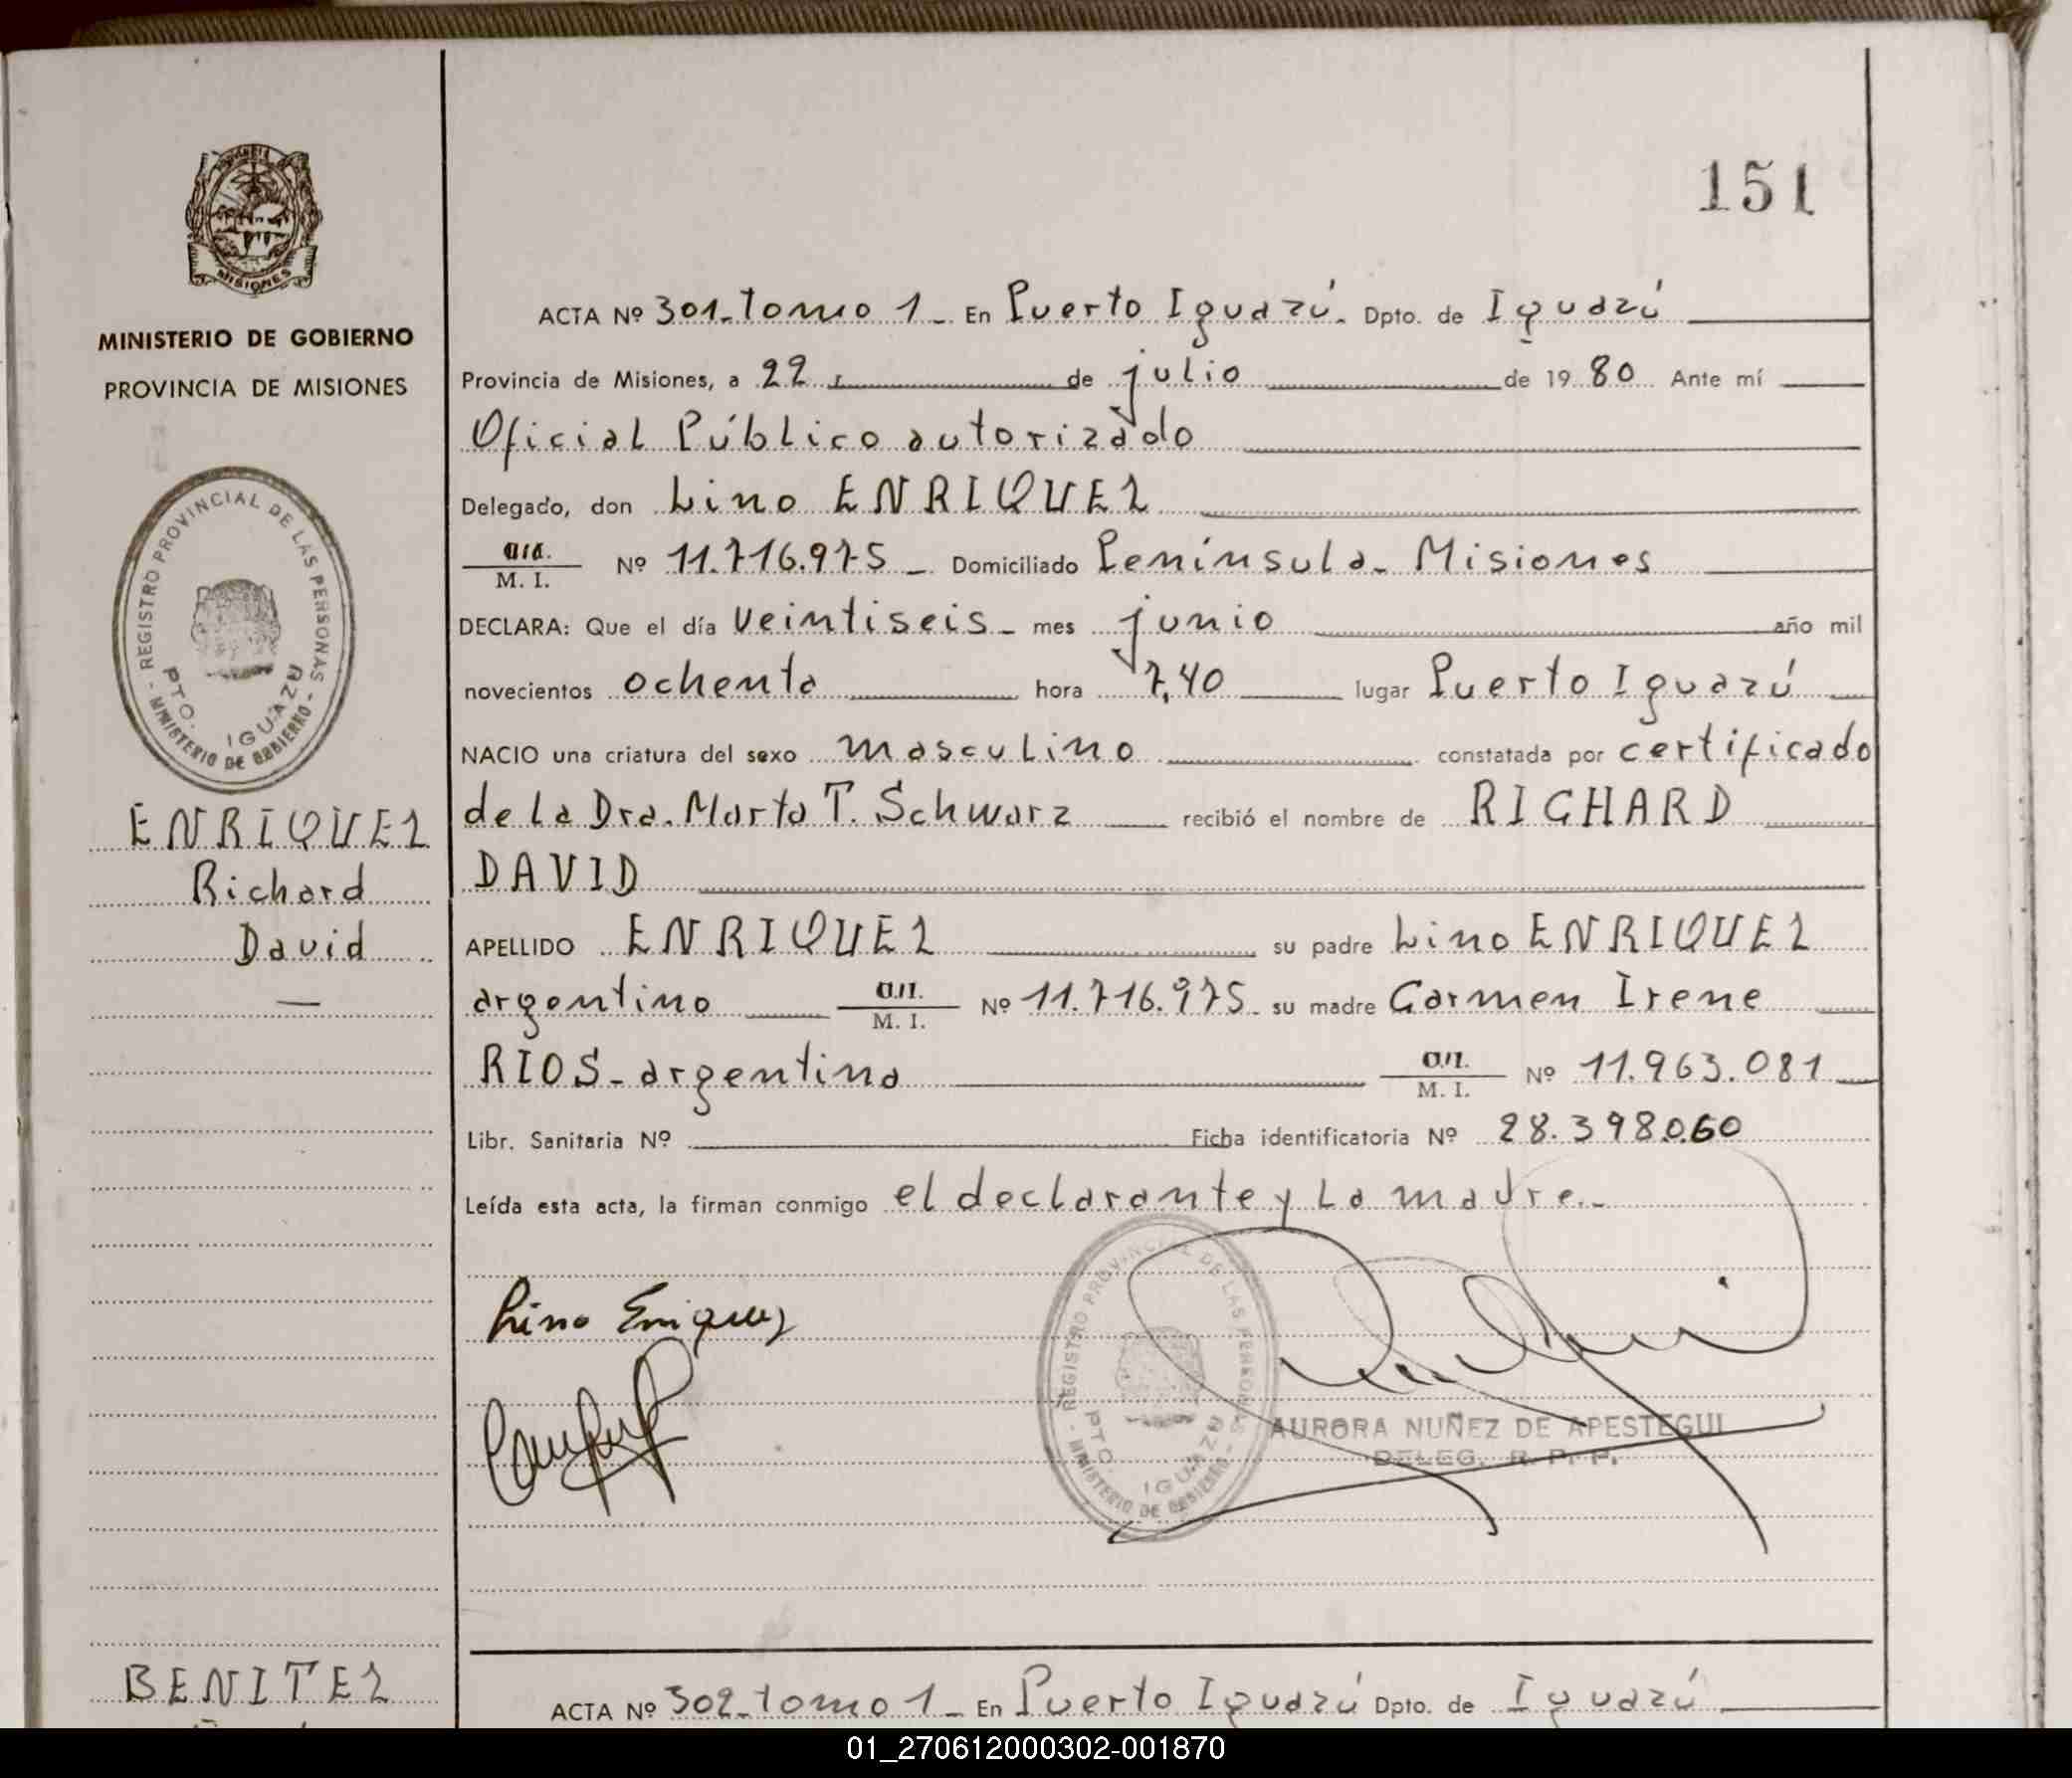 151
PROVINCIA
MISIONES
MINISTERIO DE GOBIERNO
PROVINCIA DE MISIONES
- REGISTRO PROVINCIAL DE LAS PERSONAS -
MINISTERIO DE GOBIERNO
PTO. IGUAZU
ENRIQUEZ
Richard
David
—
ACTA Nº 301-tomo 1 - En Puerto Iguazú. Dpto. de Iguazú
Provincia de Misiones, a 22 de julio de 1980 Ante mí
Oficial Público autorizado
Delegado, don Lino ENRIQUEZ
M. I. Nº 11.716.975 - Domiciliado Península - Misiones
DECLARA: Que el día veintiseis - mes junio año mil
novecientos ochenta hora 7,40 lugar Puerto Iguazú
NACIO una criatura del sexo masculino constatada por certificado
de la Dra. Marta T. Schwarz recibió el nombre de RICHARD
DAVID
APELLIDO ENRIQUEZ su padre Lino ENRIQUEZ
argentino M. I. Nº 11.716.975 - su madre Carmen Irene
RIOS - argentina M. I. Nº 11.963.081
Libr. Sanitaria Nº Ficha identificatoria Nº 28.398.060
Leída esta acta, la firman conmigo el declarante y la madre.-
Lino Enriquez
- REGISTRO PROVINCIAL DE LAS PERSONAS -
MINISTERIO DE GOBIERNO
PTO. IGUAZU
AURORA NUÑEZ DE APESTEGUI
DELEG. R. P. P.
BENITEZ
ACTA Nº 302-tomo 1 - En Puerto Iguazú Dpto. de Iguazú
01_270612000302-001870